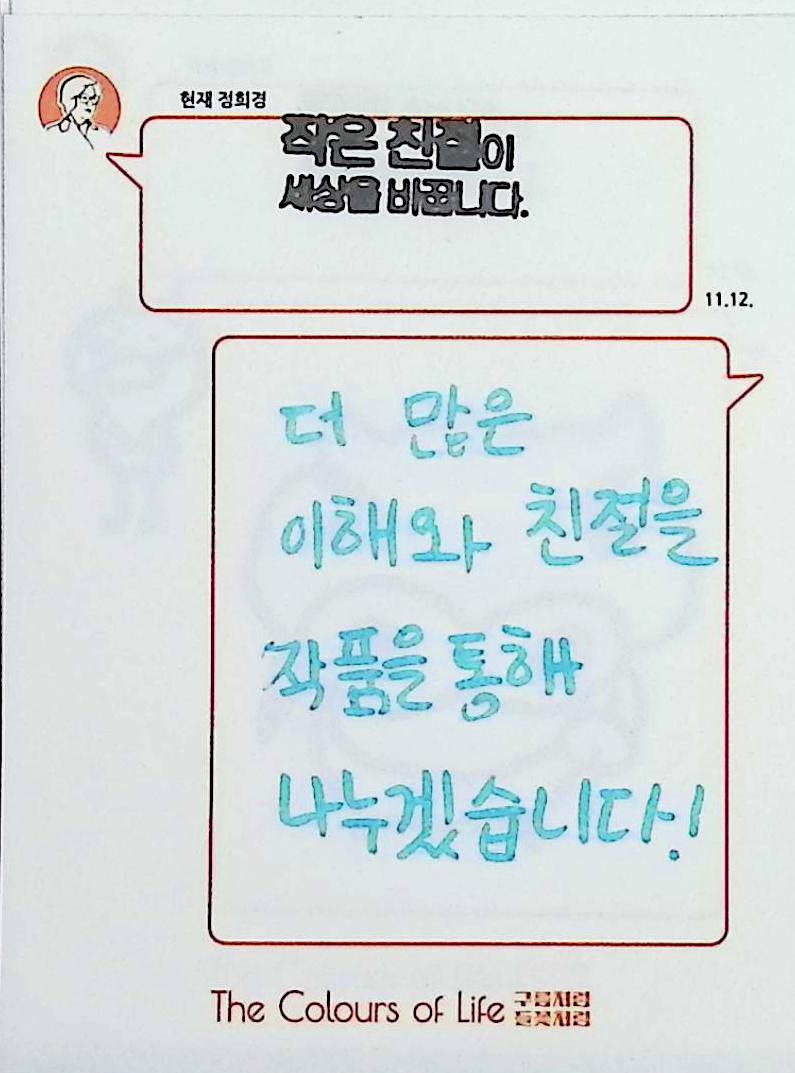 현재 정희경
작은 친절이
세상을 바꿉니다.
11.12.
더 많은
이해와 친절을
작품을 통해
나누겠습니다!
The Colours of Life 구름처럼
들꽃처럼